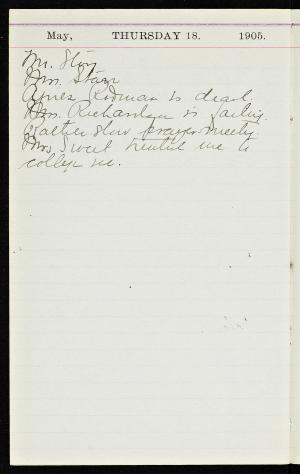 May, THURSDAY 18. 1905.
Mr. Story
Mrs. Starr
Agnes Rodman is dead.
Mrs. Richardson is failing.
Walter slow prayer meety.
Mrs. Sweet me to
college